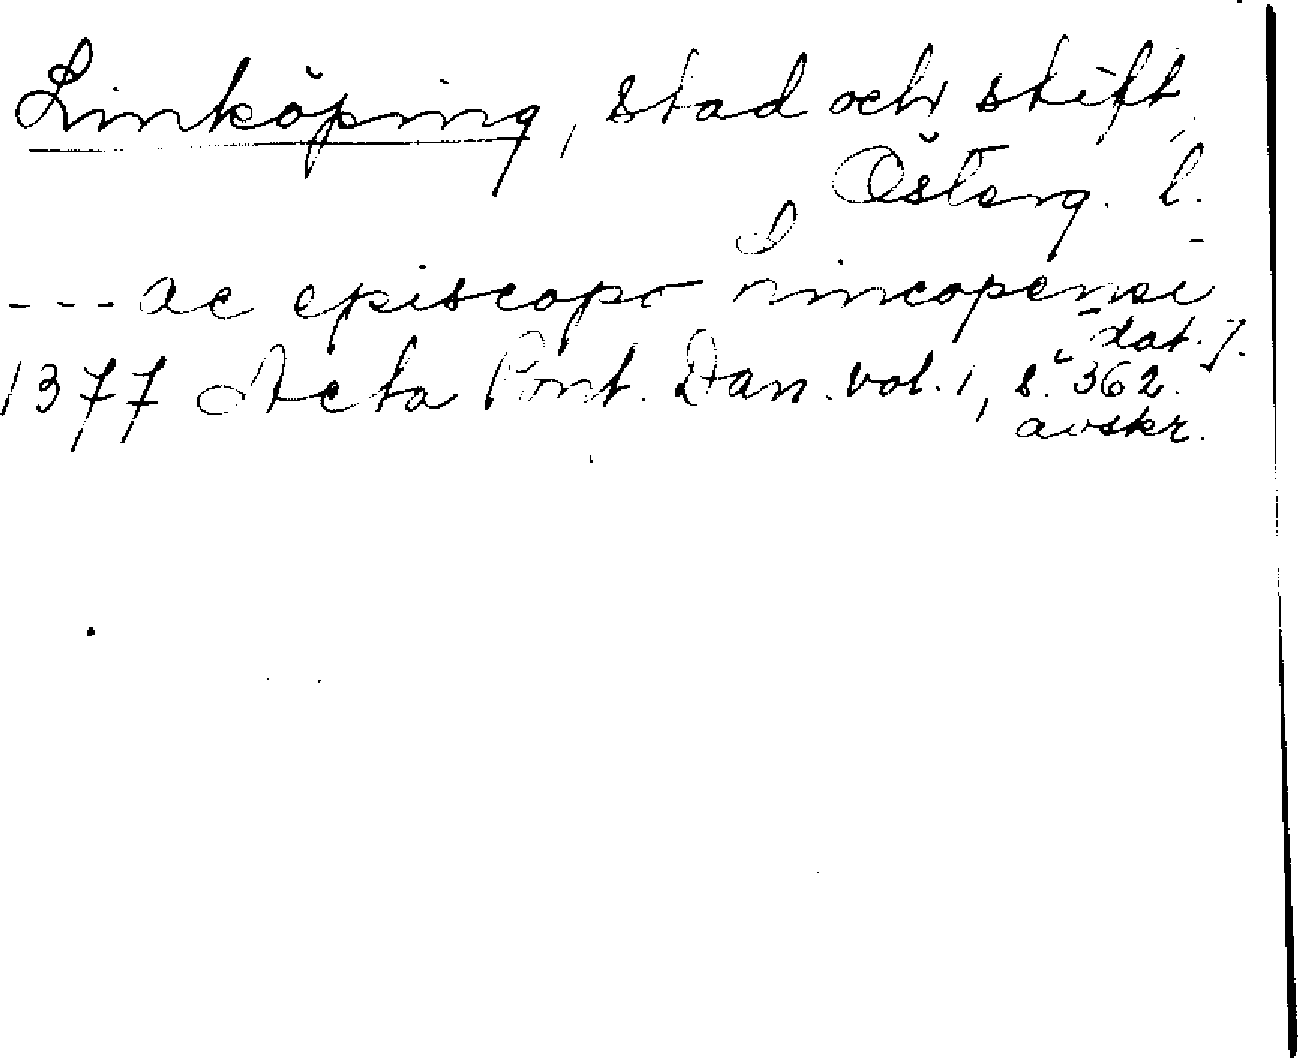 Linköping, stad och stift,
Österg. l.
--- ac episcopo rincopensi
(dat.).
1377 Acta Pont. Dan. vol. 1, s. 362.
avskr.